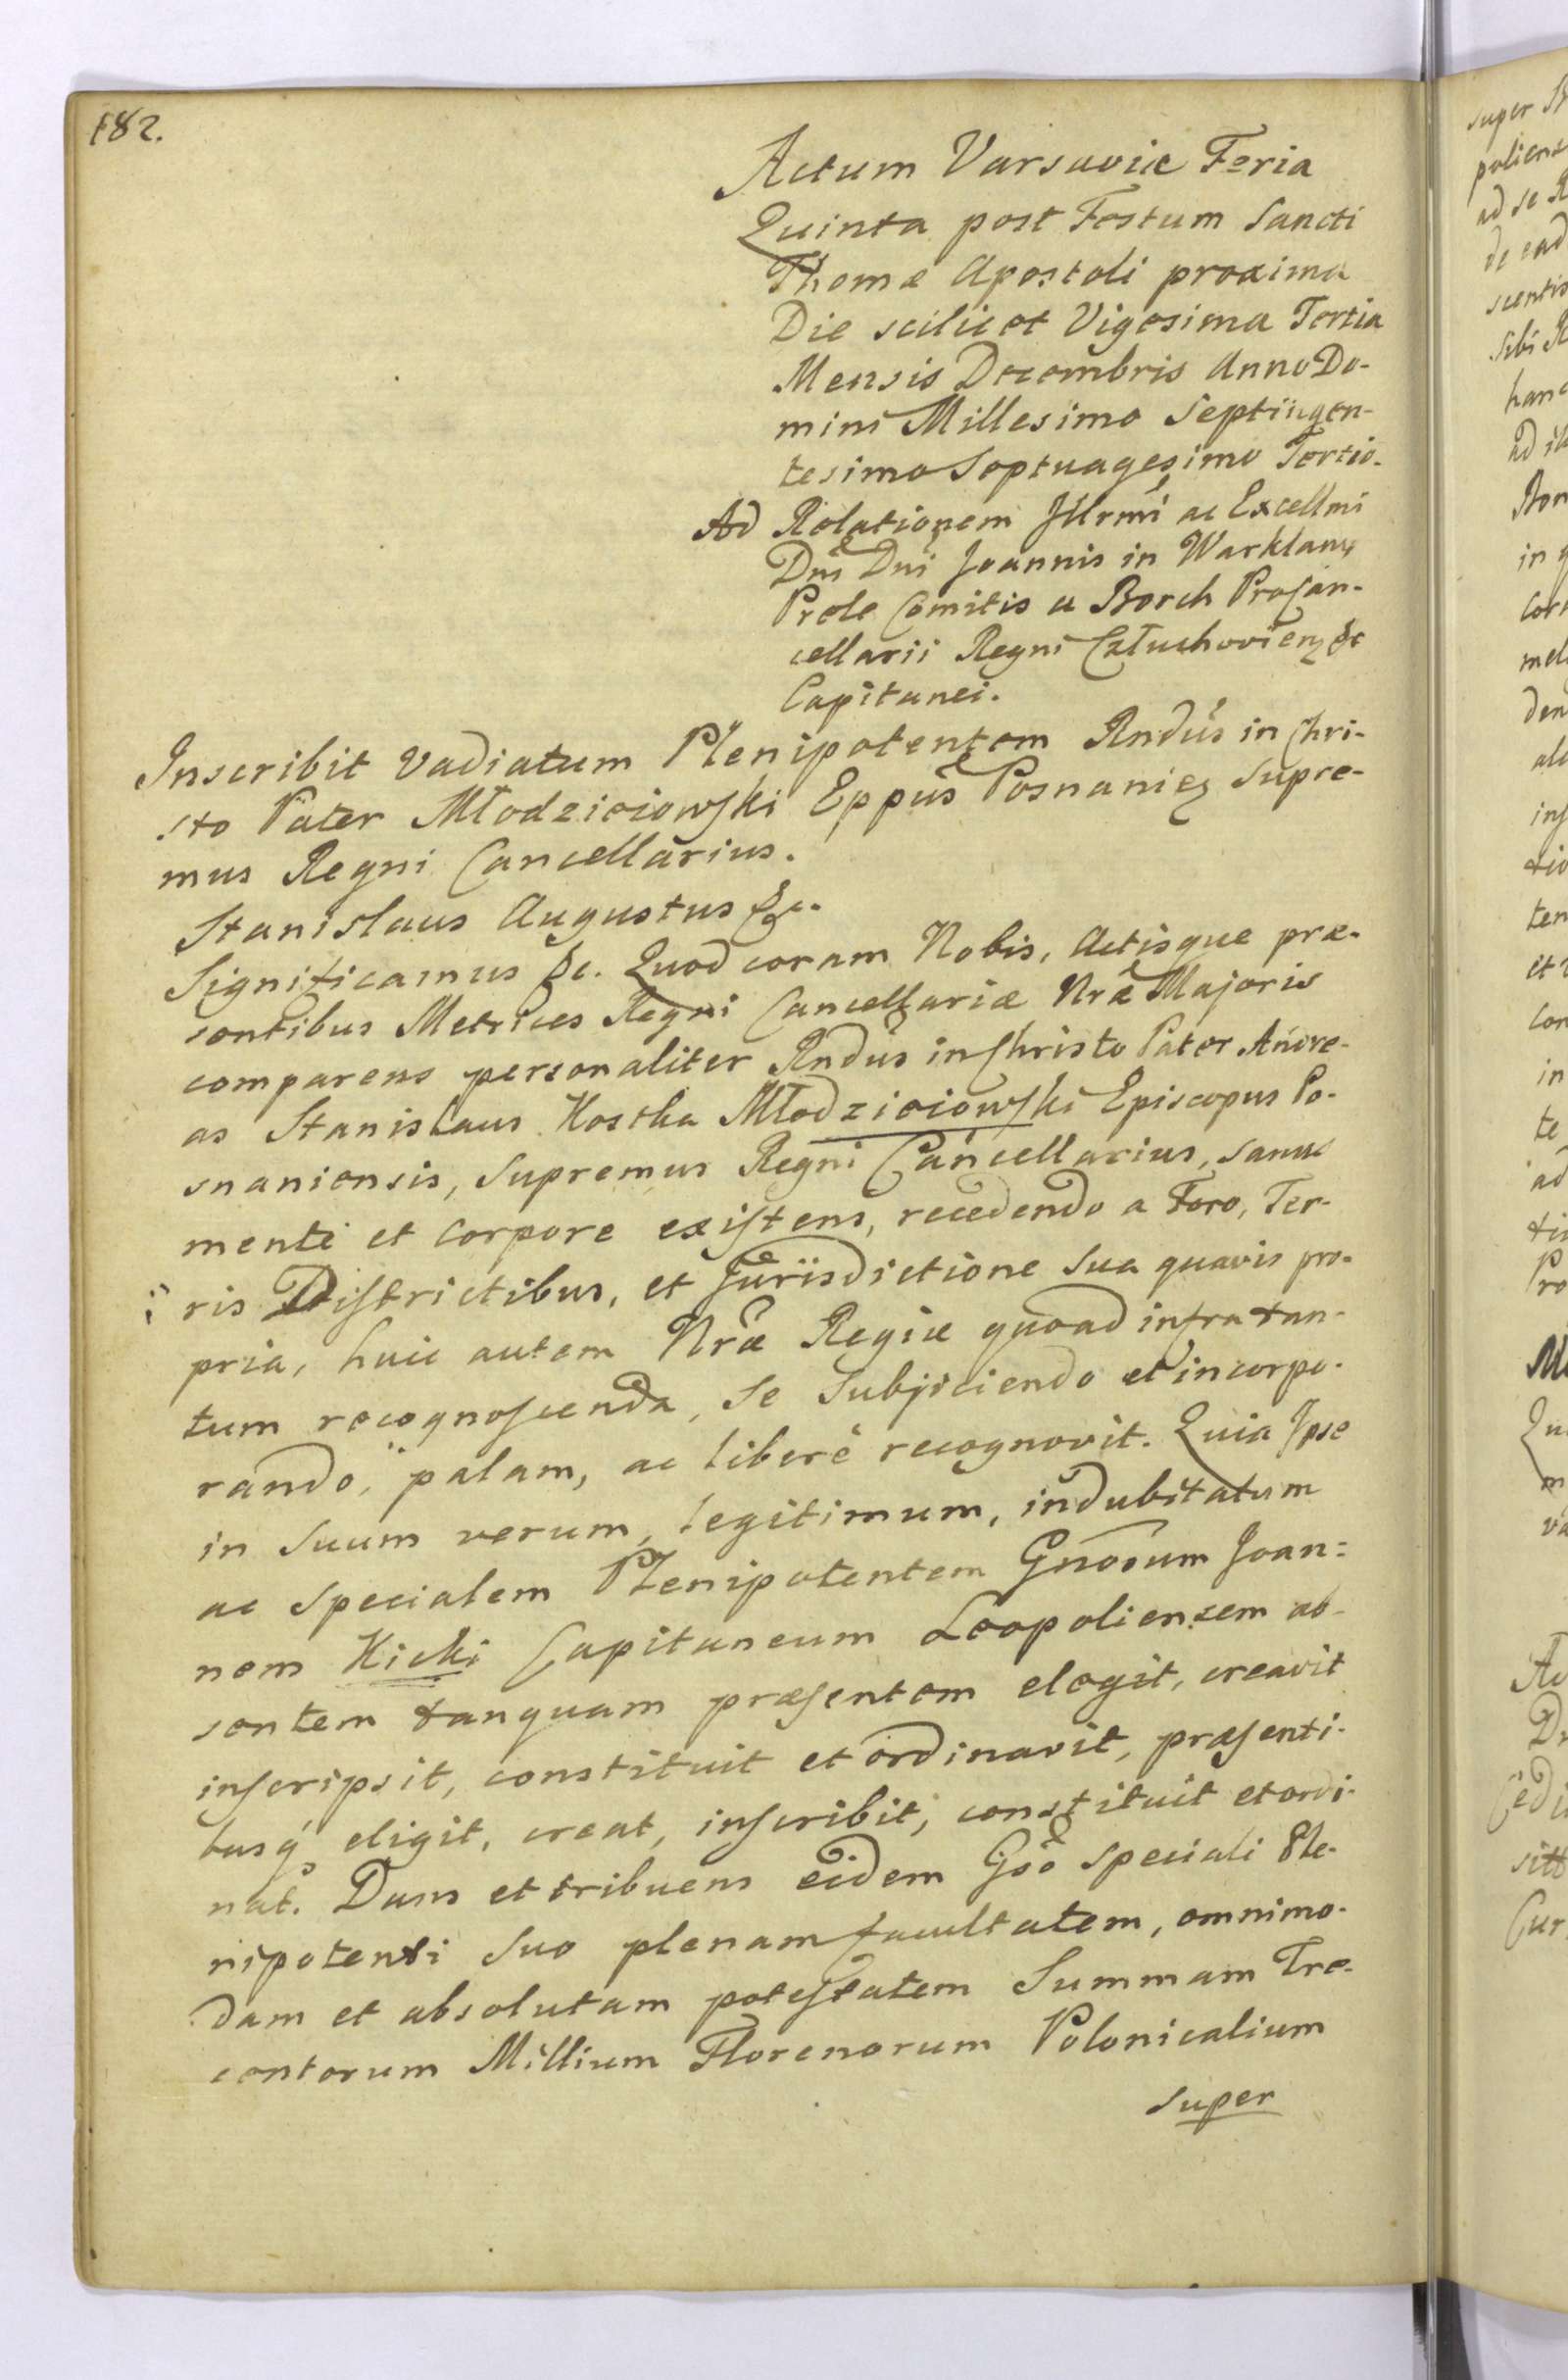 182.
Actum Varsaviæ Feria
Quinta post Festum Sancti
Thomæ Apostoli proxima
Die scilicet Vigesima Tertia
Mensis Decembris Anno Do-
mini Millesimo Septingen-
tesimo Septuagesimo Tertio.
Ad Relationem Jllrmi ac Excellmi
Dni Dni Joannis in Warklany
Prele Comitis a Borch Procan-
cellarii Regni Człuchovien &c
Capitanei.
Inscribit vadiatum Plenipotentem Rndus in Chri-
sto Pater Młodzieiowski Eppus Posnanien Supre-
mus Regni Cancellarius.
Stanislaus Augustus &c.
Significamus &c. Quod coram Nobis, Actisque præ-
sentibus Metrices Regni Cancellariæ Nræ Majoris
comparens personaliter Rndus in Christo Pater Andre-
as Stanislaus Kostka Młodzieiowski Episcopus Po-
snaniensis, Supremus Regni Cancellarius, sanus
mente et corpore existens, recedendo a Foro, Ter-
ris Districtibus, et Jurisdictione sua quavis pro-
pria, huic autem Nræ Regiæ quoad infra tan-
tum recognoscenda, se subjiciendo et incorpo-
rando, palam, ac liberè recognovit. Quia Ipse
in suum verum, legitimum, indubitatum
ac specialem Plenipotentem Gnosum Joan=
nem Kicki Capitaneum Leopoliensem ab-
sentem tanquam præsentem elegit, creavit
inscripsit, constituit et ordinavit, præsenti-
busq eligit, creat, inscribit, constituit et ordi-
nat. Dans et tribuens eidem Gso speciali Ple-
nipotenti suo plenam facultatem, omnimo-
dam et absolutam potestatem Summam Tre-
centorum Millium Florenorum Polonicalium
super